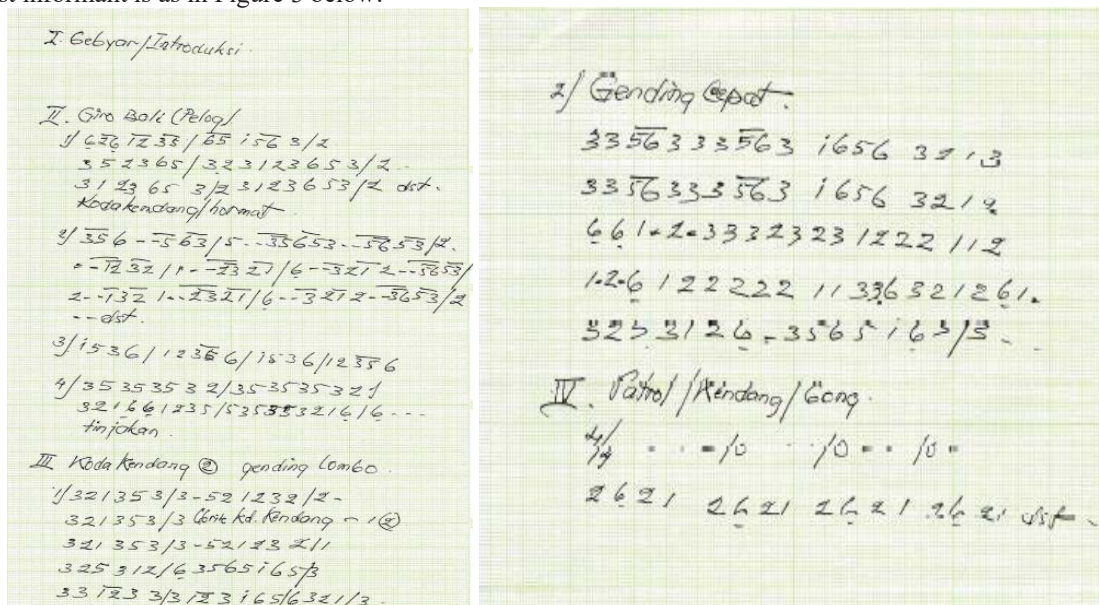 st informant is as in Figure 3 below.
I. Gebyar/Introduksi.
II. Giro Bali (Pelog)
1/ 626 1233/65 i56 3/2
352365/323123653/2
3123 65 3/23123653/2 dst.
Koda kendang/hormat
2/ 356--563/5--35653--5653/2.
--1232/1--2321/6--3212--5653/
2--132 1--2321/6--3212--3653/2
--dst.
3/ i536/12356/i536/12356
4/ 35353532/353535321
321661235/535353216/6...
tinjakan.
III Koda Kendang ② gending Lombo.
1/ 321353/3-521232/2-
321353/3 Kd. Kendang - 1②
321353/3-52123 2/1
325312/63565i65/3
33123 3/3123i65/6321/3.
2/ Gending Cepat.
33563333563 i656 3213
33563333563 i656 3212
661.2.33323231222112
1.2.6 122222 1133632126 1.
3253126.3565i63/3..
IV. Patrol/Kendang/Gong.
2621 2621 2621 2621 dst.